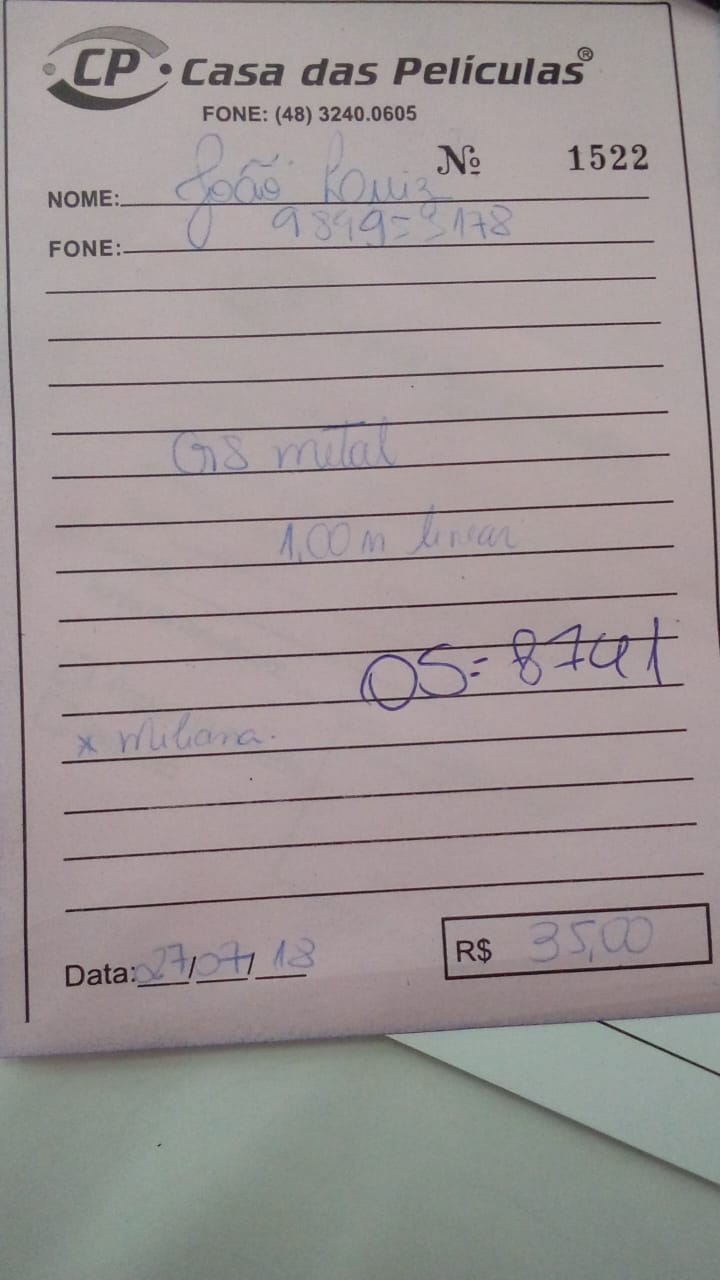 CP Casa das Películas®
FONE: (48) 3240.0605
Nº 1522
NOME: João Luiz
FONE: 98495-3178
G8 metal
1,00 m linear
OS= 8741
* Miliana.
Data: 27/07/18
R$ 35,00